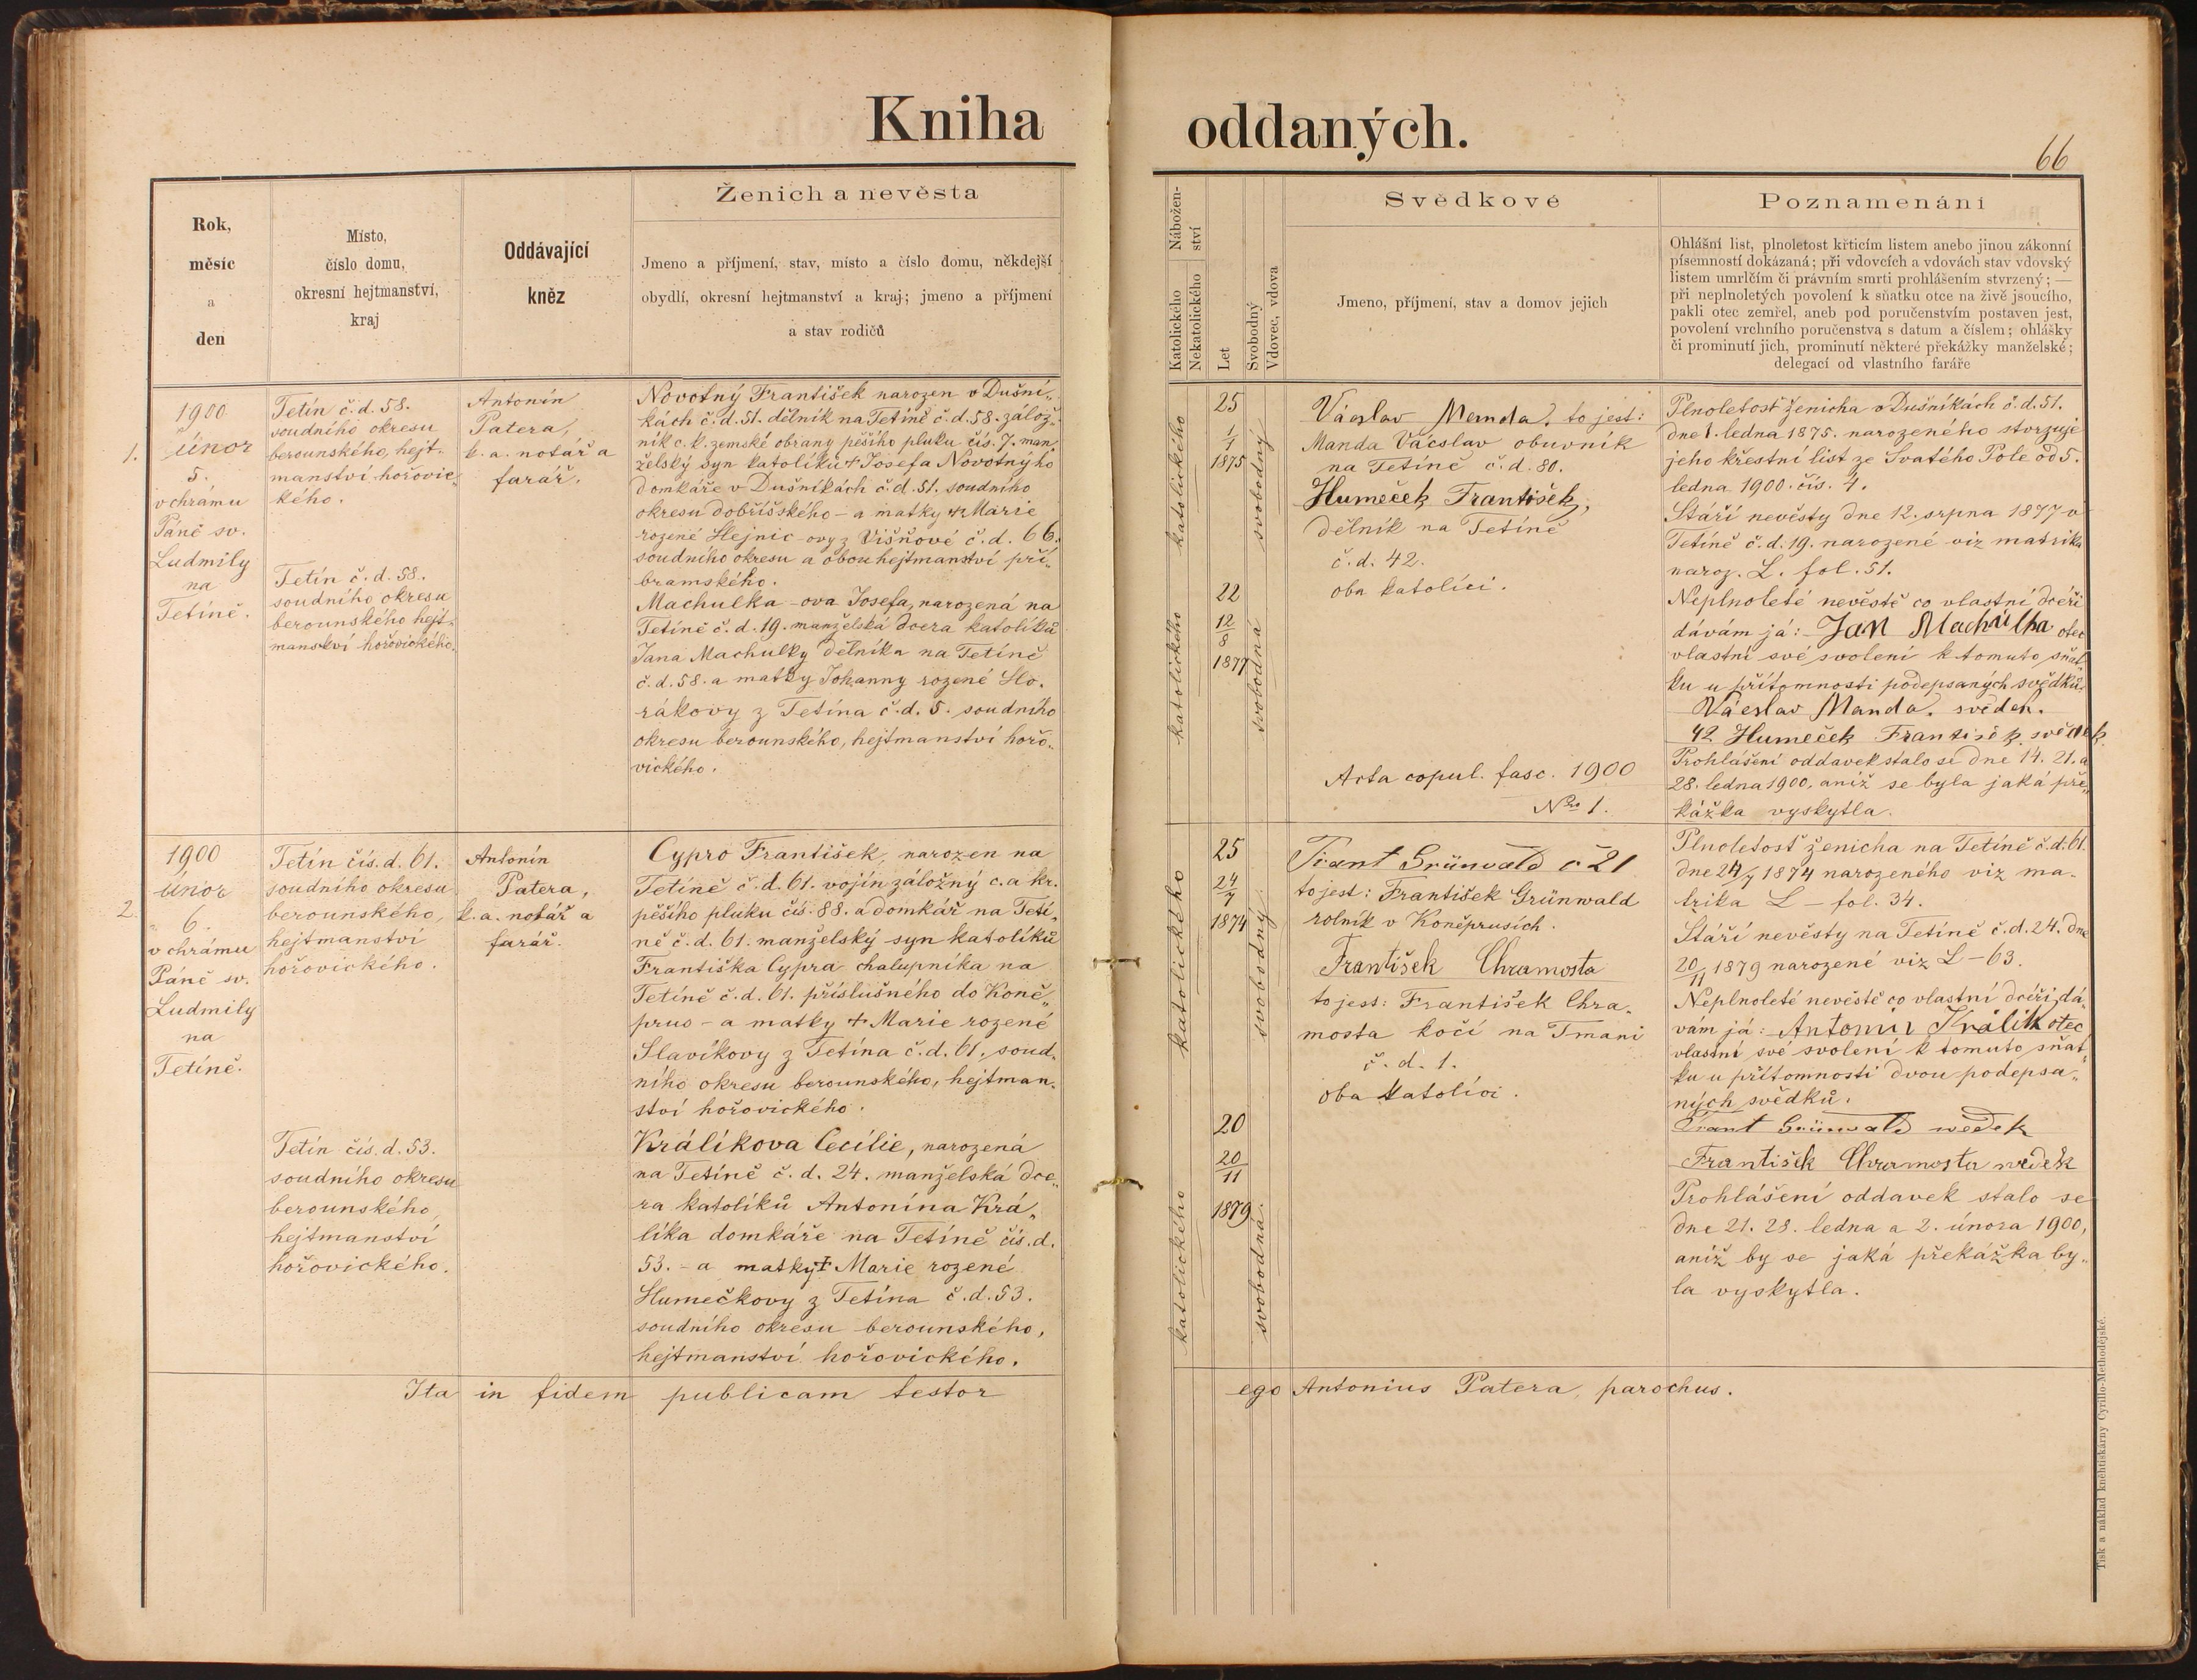 Kniha oddaných.
66
Rok,
měsíc
a
den
Místo,
číslo domu,
okresní hejtmanství,
kraj
Oddávající
kněz
Ženich a nevěsta
Jmeno a příjmení, stav, místo a číslo domu, někdejší
obydlí, okresní hejtmanství a kraj; jmeno a příjmení
a stav rodičů
Nábožen-
ství
Katolického
Nekatolického
Let
Svobodný
Vdovec, vdova
Svědkové
Jmeno, příjmení, stav a domov jejich
Poznamenání
Ohlášní list, plnoletost křticím listem anebo jinou zákonní
písemností dokázaná; při vdovcích a vdovách stav vdovský
listem umrlčím či právním smrti prohlášením stvrzený; —
při neplnoletých povolení k sňatku otce na živě jsoucího,
pakli otec zemřel, aneb pod poručenstvím postaven jest,
povolení vrchního poručenstva s datum a číslem; ohlášky
či prominutí jich, prominutí některé překážky manželské;
delegací od vlastního faráře
1.
1900
únor
5.
v chrámu
Páně sv.
Ludmily
na
Tetíně.
Tetín č. d. 58.
soudního okresu
berounského, hejt-
manství hořovic-
kého.
Tetín č. d. 58.
soudního okresu
berounského hejt-
manství hořovického.
Antonín
Patera,
b. a. notář a
farář.
Novotný František narozen v Dušní-
kách č. d. 51. dělník na Tetíně č. d. 58. zálož-
ník c. k. zemské obrany pěšího pluku čís. 7. man-
želský syn katolíků + Josefa Novotnýho
domkáře v Dušníkách č. d. 51. soudního
okresu dobříšského – a matky + Marie
rozené Hejnic-ovy z Višňové č. d. 66.
soudního okresu a obou hejtmanství pří-
bramského.
Machulka-ova Josefa, narozená na
Tetíně č. d. 19. manželská dcera katolíků
Jana Machulky dělníka na Tetíně
č. d. 58. a matky Johanny rozené Ho-
rákovy z Tetína č. d. 5. soudního
okresu berounského, hejtmanství hořo-
vického.
katolického
25
1/1
1875
svobodný
katolického
22
12/8
1877
svobodná
Václav Manda. to jest:
Manda Václav obuvník
na Tetíně č. d. 80.
Humeček František,
dělník na Tetíně
č. d. 42.
oba katolíci.
Acta copul. fasc. 1900
Nro 1.
Plnoletost ženicha v Dušníkách č. d. 51.
dne 1. ledna 1875. narozeného stvrzuje
jeho křestní list ze Svatého Pole od 5.
ledna 1900. čís. 4.
Stáří nevěsty dne 12. srpna 1877 v
Tetíně č. d. 19. narozené viz matrika
naroz. L. fol. 51.
Neplnoleté nevěstě co vlastní dceři
dávám já: Jan Machulka otec
vlastní své svolení k tomuto sňat-
ku u přítomnosti podepsaných svědků.
Václav Manda. svědek.
42 Humeček František svědek
Prohlášení oddavek stalo se dne 14. 21. a
28. ledna 1900, aniž se byla jaká pře-
kážka vyskytla.
2.
1900
únor
6.
v chrámu
Páně sv.
Ludmily
na
Tetíně.
Tetín čís. d. 61.
soudního okresu
berounského,
hejtmanství
hořovického.
Tetín čís. d. 53.
soudního okresu
berounského,
hejtmanství
hořovického.
Antonín
Patera,
b. a. notář a
farář.
Cypro František, narozen na
Tetíně č. d. 61. vojín záložný c. a kr.
pěšího pluku čís. 88. a domkář na Tetí-
ně č. d. 61. manželský syn katolíků
Františka Cypra chalupníka na
Tetíně č. d. 61. příslušného do Koně-
prus – a matky + Marie rozené
Slavíkovy z Tetína č. d. 61, soud-
ního okresu berounského, hejtman-
ství hořovického.
Králíkova Cecílie, narozená
na Tetíně č. d. 24. manželská dce-
ra katolíků Antonína Krá-
líka domkáře na Tetíně čís. d.
53. – a matky + Marie rozené
Humečkovy z Tetína č. d. 53.
soudního okresu berounského,
hejtmanství hořovického.
katolického
25
24/7
1874
svobodný
katolického
20
20/11
1879
svobodná.
Frant Grünwald č 21
to jest: František Grünwald
rolník v Koněprusích.
František Chramosta
to jest: František Chra-
mosta kočí na Tmani
č. d. 1.
oba katolíci.
Plnoletost ženicha na Tetíně č. d. 61.
dne 24/7 1874 narozeného viz ma-
trika L – fol. 34.
Stáří nevěsty na Tetíně č. d. 24. dne
20/11 1879 narozené viz L – 63.
Neplnoleté nevěstě co vlastní dceři, dá-
vám já: Antonín Králík otec
vlastní své svolení k tomuto sňat-
ku u přítomnosti dvou podepsa-
ných svědků.
Frant Grünwald swědek
František Chramosta swědek
Prohlášení oddavek stalo se
dne 21. 28. ledna a 2. února 1900,
aniž by se jaká překážka by-
la vyskytla.
Ita in fidem publicam testor ego Antonius Patera, parochus.
Tisk a náklad knihtiskárny Cyrillo-Methodějské.